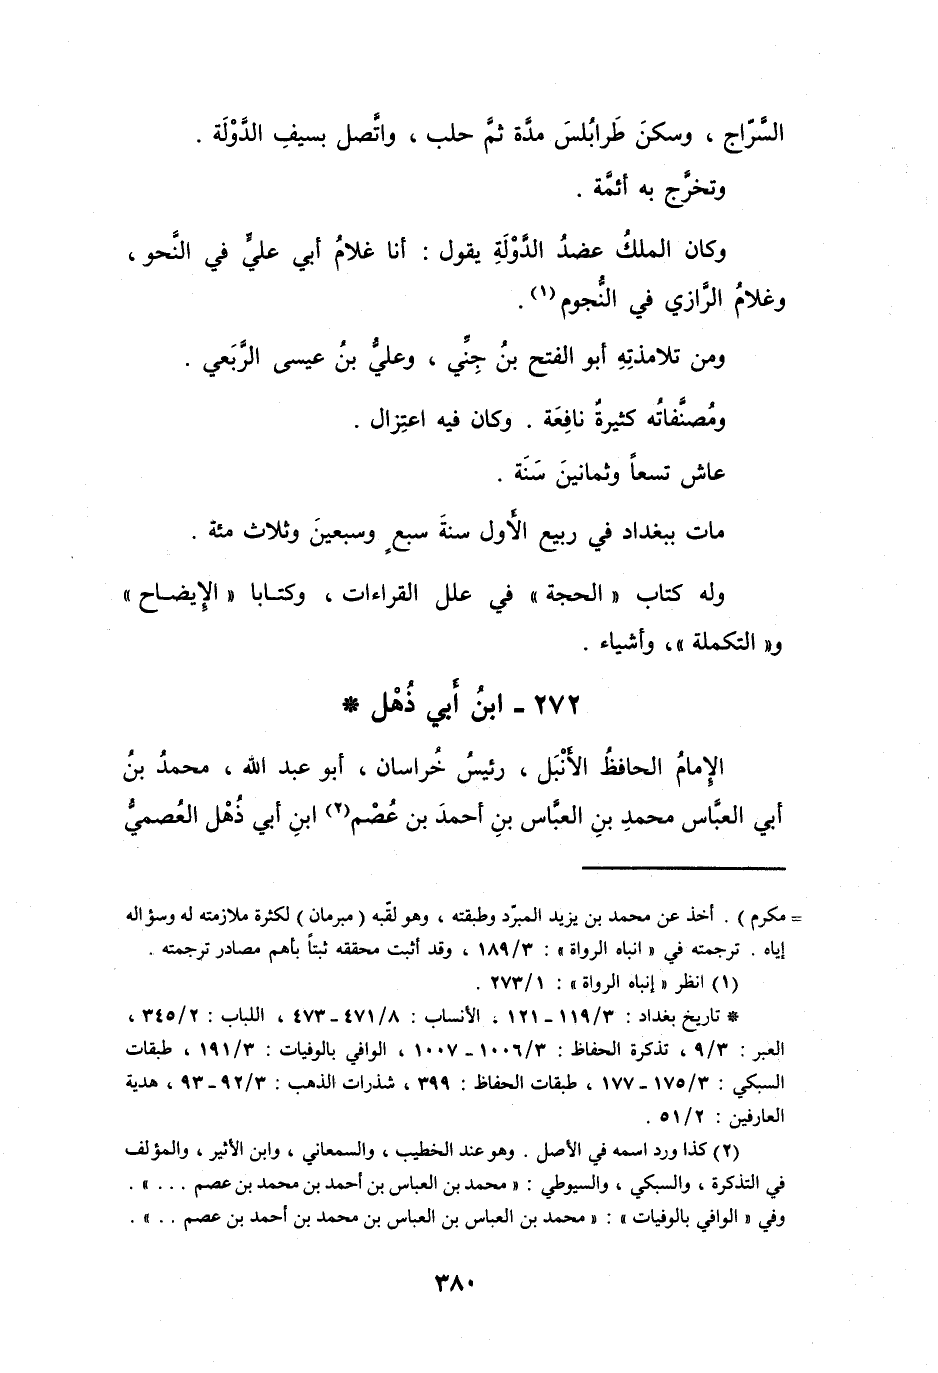 السَّرّاج ، وسكنَ طَرابُلسَ مدَّة ثمَّ حلب ، واتَّصل بسيفِ الدَّوْلَة .
وتخرَّج به أئمَّة .
وكان الملكُ عضدُ الدَّوْلَةِ يقول : أنا غلامُ أبي عليٍّ في النَّحو ،
وغلامُ الرَّازي في النُّجوم(١) .
ومن تلامذتِهِ أبو الفتح بنُ جِنِّي ، وعليُّ بنُ عيسى الرَّبَعي .
ومُصنَّفاتُه كثيرةٌ نافِعَة . وكان فيه اعتِزال .
عاش تسعاً وثمانينَ سَنَة .
مات ببغداد في ربيع الأَول سنةَ سبعٍ وسبعينَ وثلاث مئة .
وله كتاب « الحجة » في علل القراءات ، وكتـابا « الإِيضـاح »
و« التكملة » ، وأشياء .
٢٧٢ - ابنُ أَبي ذُهْل *
الإِمامُ الحافظُ الأَنْبَل ، رئيسُ خُراسان ، أبو عبد الله ، محمدُ بنُ
أبي العبَّاس محمدِ بنِ العبَّاس بنِ أحمدَ بن عُصْم(٢) ابنِ أبي ذُهْل العُصميُّ
= مكرم ) . أخذ عن محمد بن يزيد المبرّد وطبقته ، وهو لقبه ( مبرمان ) لكثرة ملازمته له وسؤاله
إياه . ترجمته في « انباه الرواة » : ١٨٩/٣ ، وقد أثبت محققه ثبتاً بأهم مصادر ترجمته .
(١) انظر « إنباه الرواة » : ٢٧٣/١ .
* تاريخ بغداد : ١١٩/٣ - ١٢١ ، الأنساب : ٤٧١/٨ - ٤٧٣ ، اللباب : ٣٤٥/٢ ،
العبر : ٩/٣ ، تذكرة الحفاظ : ١٠٠٦/٣ - ١٠٠٧ ، الوافي بالوفيات : ١٩١/٣ ، طبقات
السبكي : ١٧٥/٣ - ١٧٧ ، طبقات الحفاظ : ٣٩٩ ، شذرات الذهب : ٩٢/٣ - ٩٣ ، هدية
العارفين : ٥١/٢ .
(٢) كذا ورد اسمه في الأصل . وهو عند الخطيب ، والسمعاني ، وابن الأثير ، والمؤلف
في التذكرة ، والسبكي ، والسيوطي : « محمد بن العباس بن أحمد بن محمد بن عصم . . . » .
وفي « الوافي بالوفيات » : « محمد بن العباس بن العباس بن محمد بن أحمد بن عصم . . » .
٣٨٠